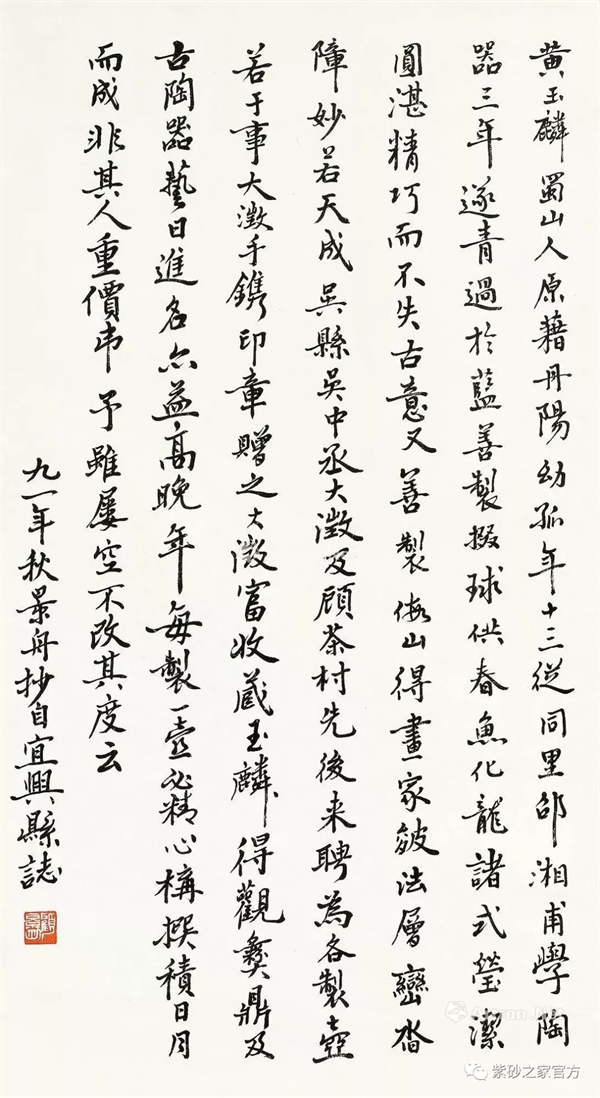 黄玉麟蜀山人原藉丹陽幼孤年十三從同里邵湘甫學陶
器三年遂青過於藍善製掇球供春魚化龍諸式瑩潔
圓湛精巧而不失古意又善製假山得畫家皴法層巒沓
障妙若天成吳縣吳中丞大澂及顧茶村先後来聘為各製壺
若干事大澂手鐫印章贈之大澂富收藏玉麟得觀彝鼎及
古陶器藝日進名亦益高晚年每製一壺必精心構撰積日月
而成非其人重價弗予雖屢空不改其度云
九一年秋景舟抄自宜興縣誌
紫砂之家官方